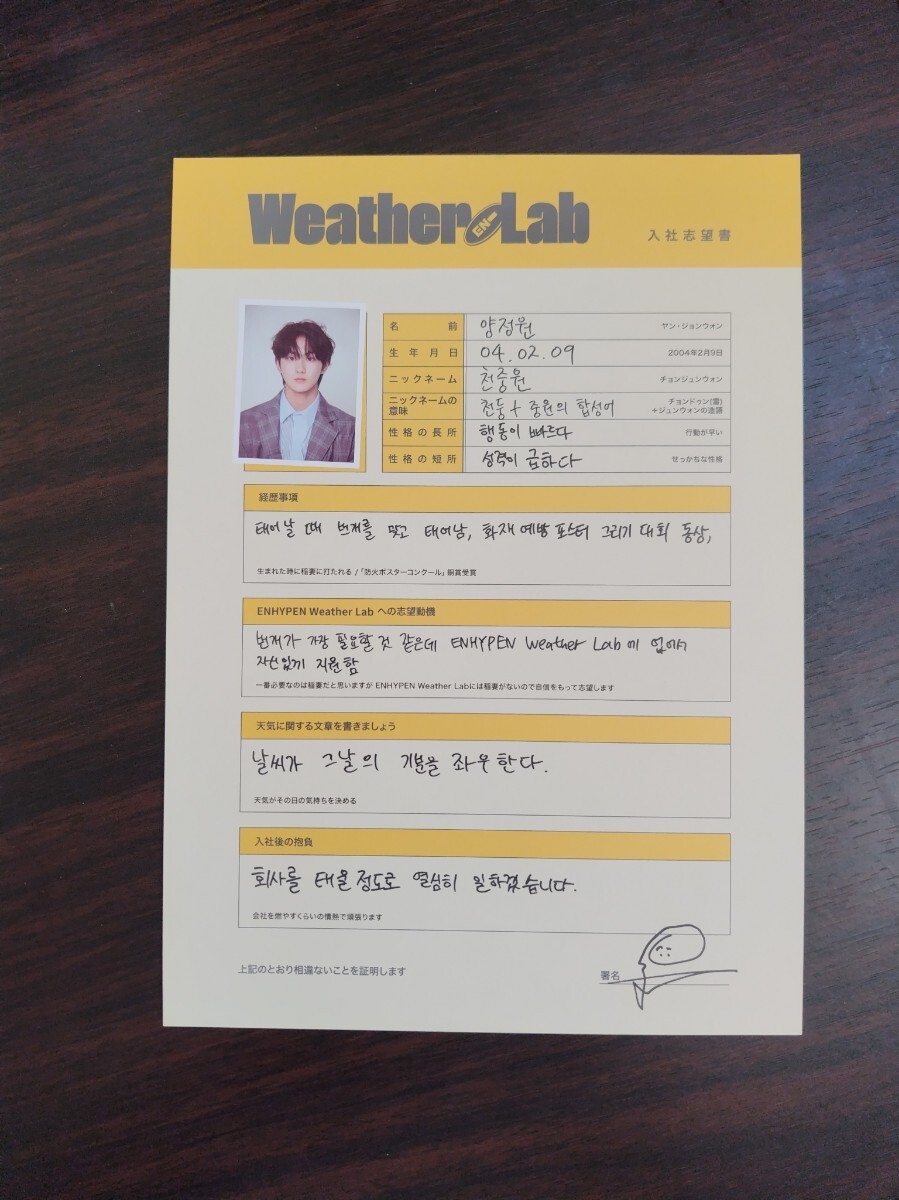 Weather EN- Lab
入社志望書
名前 양정원 ヤン・ジョンウォン
生年月日 04.02.09 2004年2月9日
ニックネーム 천중원 チョンジュンウォン
ニックネームの意味 천둥 + 중원의 합성어 チョンドゥン(雷)+ジュンウォンの造語
性格の長所 행동이 빠르다 行動が早い
性格の短所 성격이 급하다 せっかちな性格
経歴事項
태어날 때 번개를 맞고 태어남, 화재 예방 포스터 그리기 대회 동상,
生まれた時に稲妻に打たれる /「防火ポスターコンクール」銅賞受賞
ENHYPEN Weather Lab への志望動機
번개가 가장 필요할 것 같은데 ENHYPEN Weather Lab에 없어서
자신있게 지원함
一番必要なのは稲妻だと思いますが ENHYPEN Weather Labには稲妻がないので自信をもって志望します
天気に関する文章を書きましょう
날씨가 그날의 기분을 좌우한다.
天気がその日の気持ちを決める
入社後の抱負
회사를 태울 정도로 열심히 일하겠습니다.
会社を燃やすくらいの情熱で頑張ります
上記のとおり相違ないことを証明します
署名